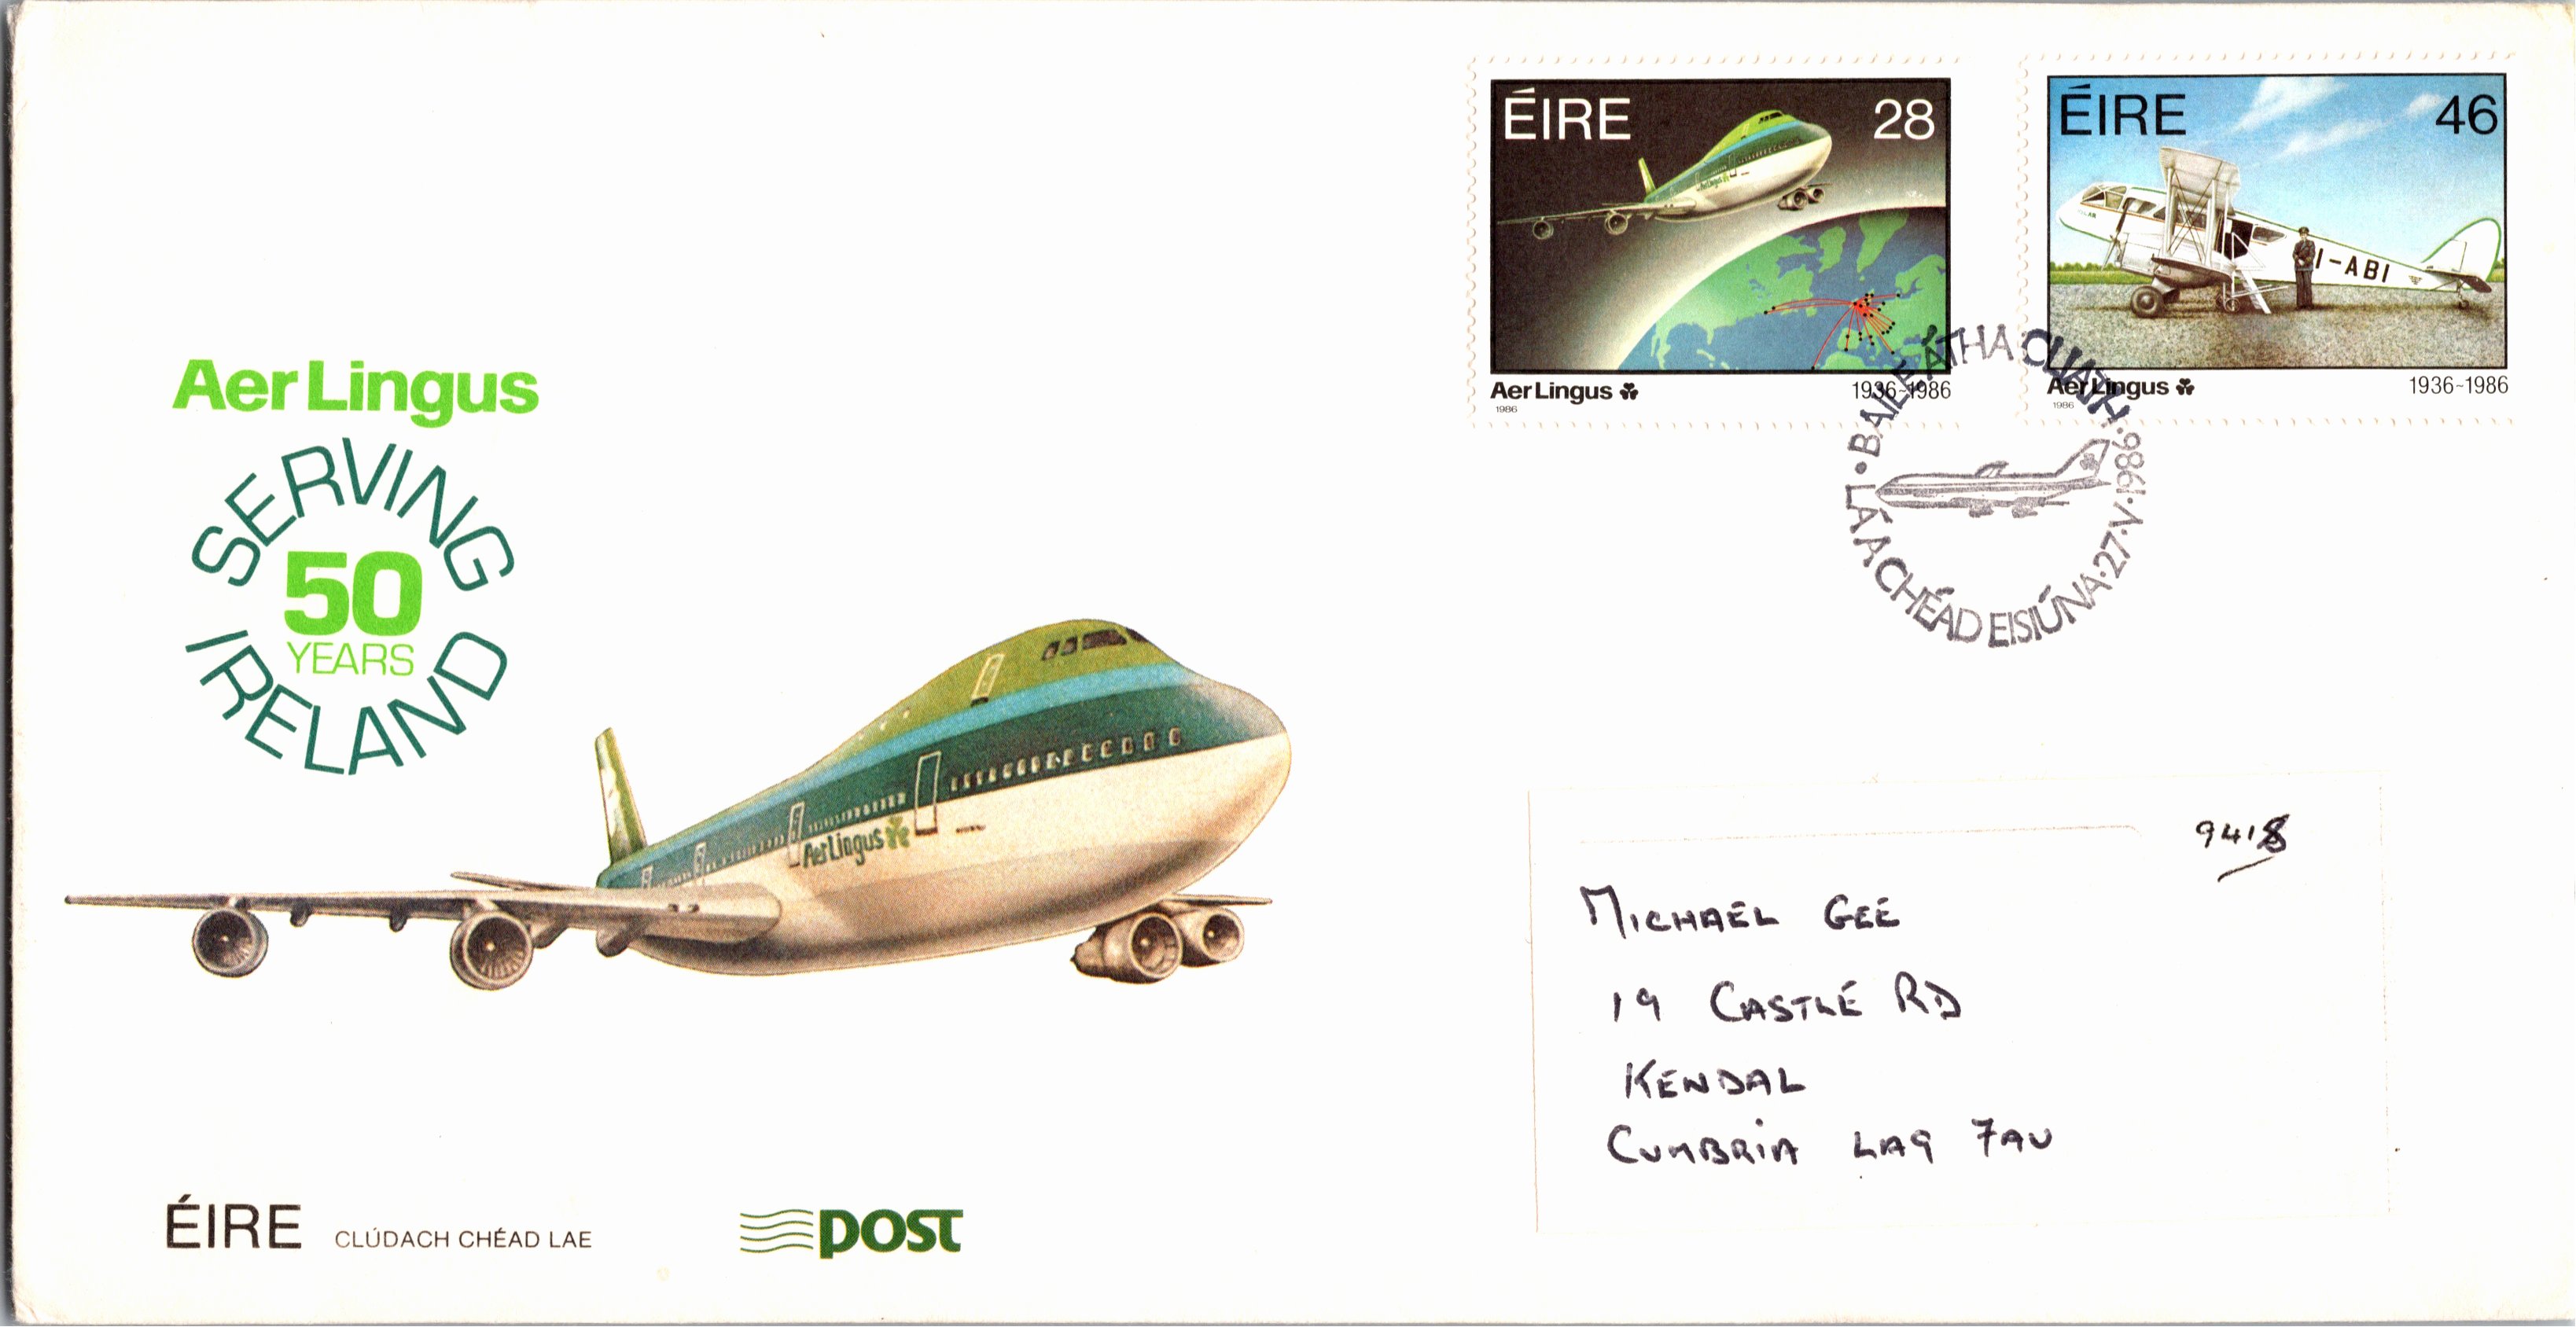 ÉIRE 28
Aer Lingus
AerLingus 1936~1986
1986
ÉIRE 46
I-ABI
AerLingus 1936~1986
1986
BAILE ÁTHA CLIATH
LÁ A CHÉAD EISIÚNA·27·V·1986
Aer Lingus
SERVING
50
YEARS
IRELAND
AerLingus
9418
MICHAEL GEE
19 CASTLE RD
KENDAL
CUMBRIA LA9 7AU
ÉIRE CLÚDACH CHÉAD LAE
post